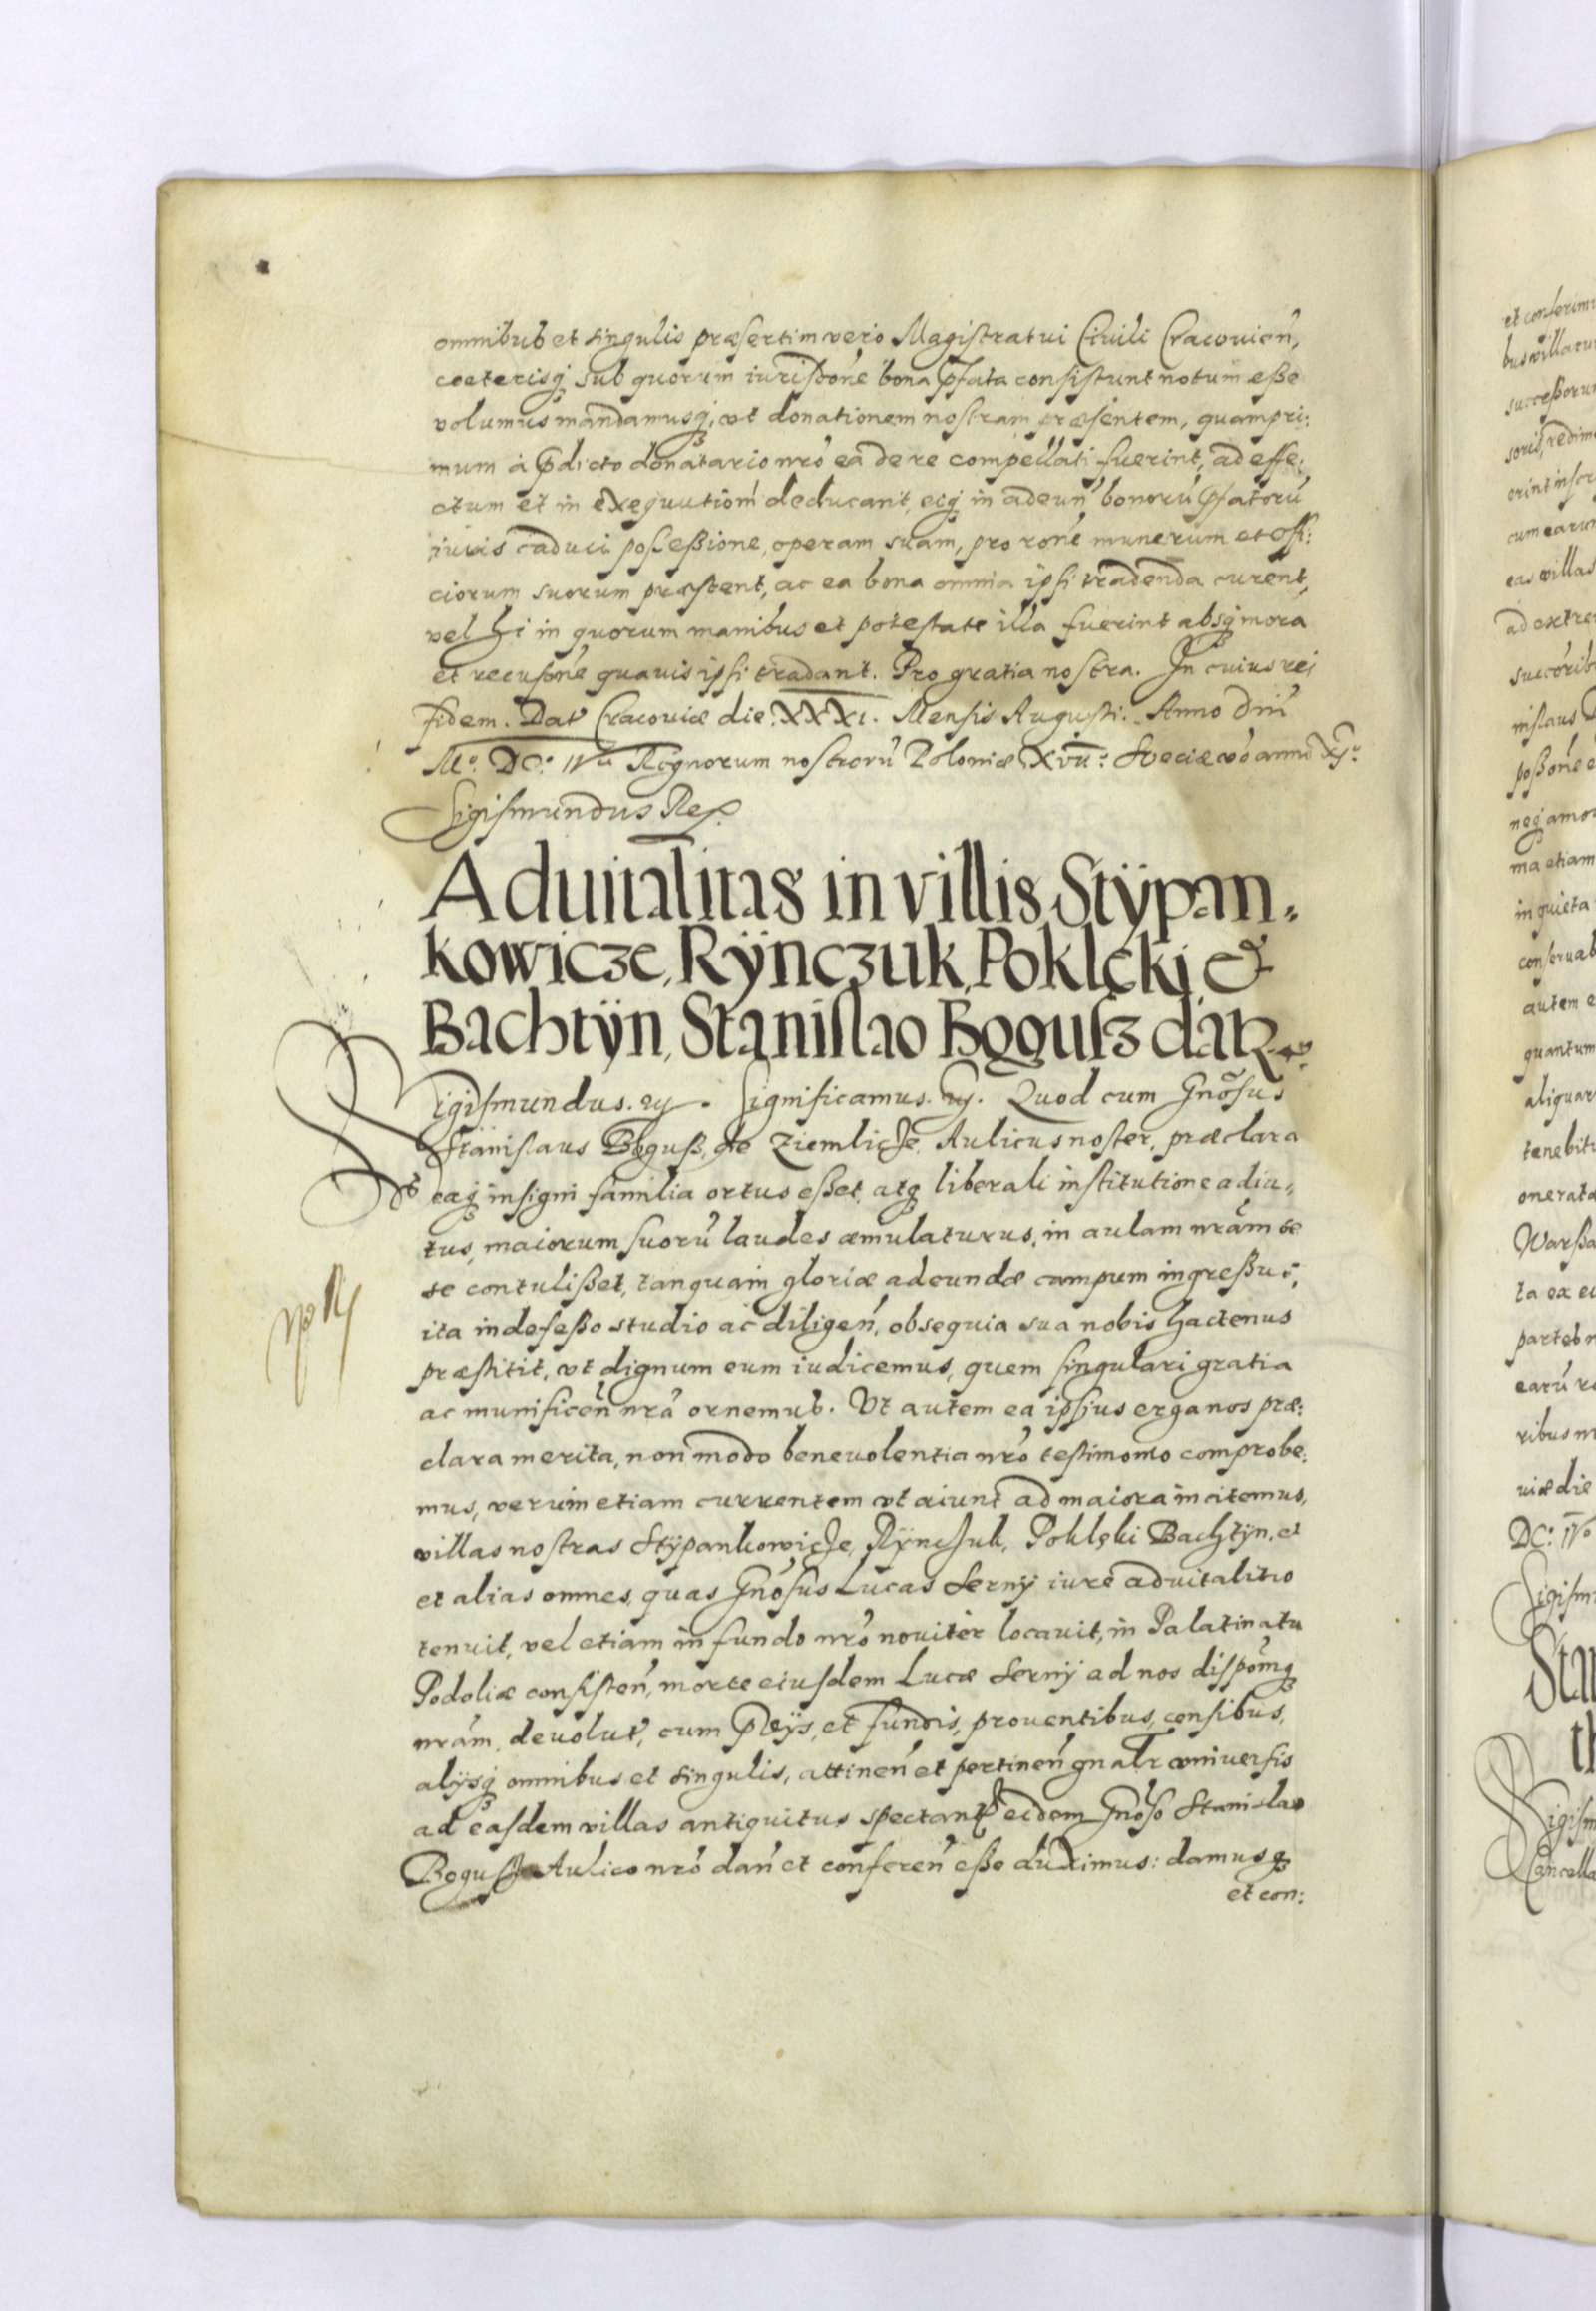 omnibus et singulis præsertim vero Magistratui Ciuili Cracouień,
cæterisq; sub quorum iurisdōne bona p̄fata consistunt notum eße
volumus mandamusq;, vt donationem nostram præsentem, quampri:
mum à p̄dicto donatario nrō ea de re compellati fuerint, ad effe:
ctum et in exequutiōm deducant, eiq; in adeuń bonorū p̄fatorū
iuris caduci poßeßione, operam suam, pro rōne munerum et offi:
ciorum suorum præstent, ac ea bona omnia ipsi tradenda curent,
vel hi in quorum manibus et potestate illa fuerint absq; mora
et recusōne quauis ipsi tradant. Pro gratia nostra. In cuius rei
fidem. Dat Cracouiæ die XXXI. Mensis Augusti. Anno Dnī
Mº. DCº. IVtº Regnorum nostrorū Poloniæ XVII: Sueciæ vō anno XIº
Sigismundus Rex
Aduitalitas in villis Stÿpan.
kowicze, Rÿnczuk, Poklęki, et
Bachtÿn, Stanislao Bogusz datr.
Sigismundus. etc. Significamus. etc. Quod cum Gnōsus
Stanislaus Boguß, de Ziemlicze, Aulicus noster, præclara
eaq; insigni familia ortus eßet, atq; liberali institutione adiu,,
tus, maiorum suorū laudes æmulaturus, in aulam nrām se
se contulißet, tanquam gloriæ adeundæ campum ingreßus,
ita indefeßo studio ac diligeń, obsequia sua nobis hactenus
præstitit, vt dignum eum iudicemus, quem singulari gratia
ac munificeń nrā ornemus. Vt autem ea ipsius erga nos præ:
clara merita, non modo beneuolentia nrō testimonio comprobe:
mus, verum etiam currentem vt aiunt ad maiora incitemus,
villas nostras Stÿpankowicze, Rÿnczuk, Poklęki Bachtÿn, et
et alias omnes, quas Gnōsus Lucas Sernÿ iure aduitalitio
tenuit, vel etiam in fundo nrō nouiter locauit, in Palatinatu
Podoliæ consisteń, morte eiusdem Lucæ Sernÿ ad nos dispōnmq;
nrām, deuolut, cum p̄dijs, et fundis, prouentibus, censibus,
alijsq; omnibus et singulis, attineń et pertineń gnalr vniuersis
ad easdem villas antiquitus spectań, eidem Gnōso Stanislao
Bogusz Aulico nrō dań et confereń eße duximus: damusq;
et con: